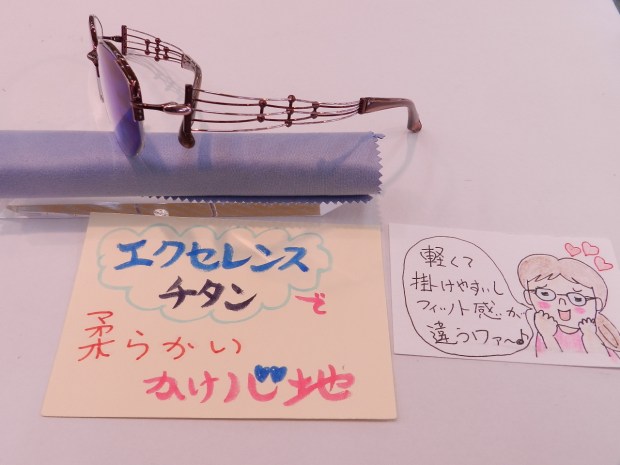 エクセレンス
チタンで
柔らかい
かけ心地
軽くて
掛けやすいし
フィット感が
違うワァ〜♪